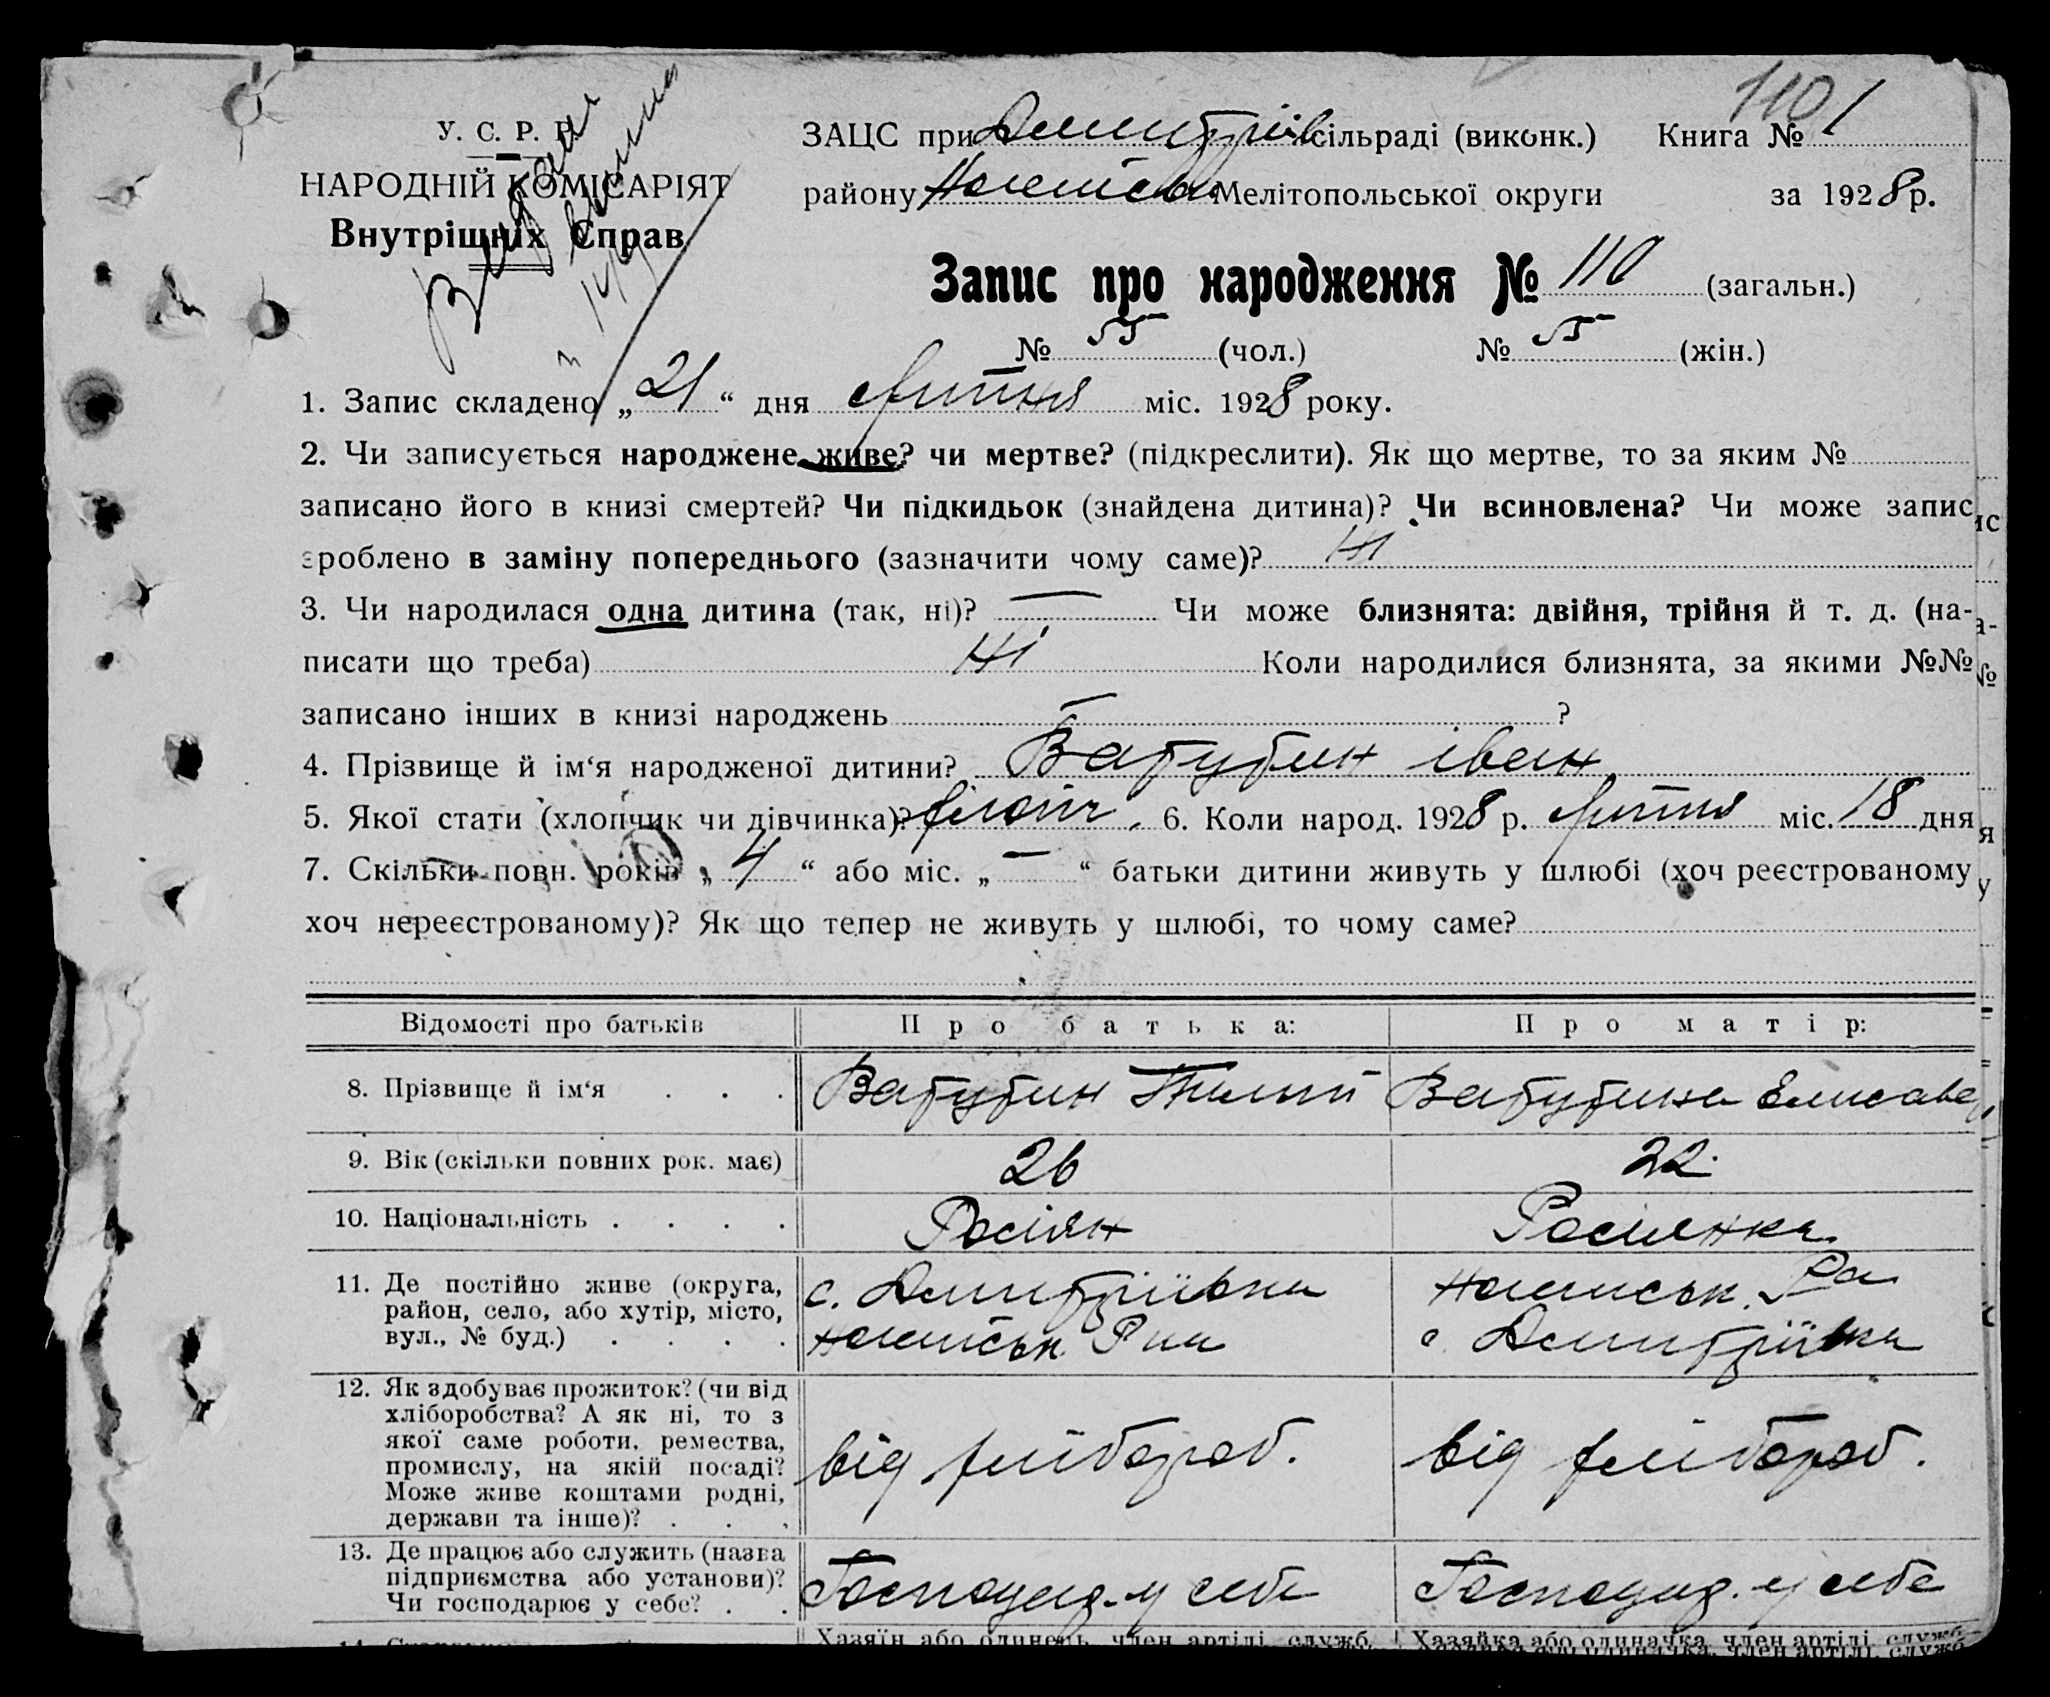 110
У. С. Р. Р.
НАРОДНІЙ КОМІСАРІЯТ
Внутрішніх Справ
Видан
ЗАЦС при Дмитрів сільраді (виконк.) Книга № 1
району Мелітопольської округи за 1928 р.
Запис про народження № 110 (загальн.)
№ 55 (чол.) № 55 (жін.)
1. Запис складено „21“ дня липня міс. 1928 року.
2. Чи записується народжене живе? чи мертве? (підкреслити). Як що мертве, то за яким №
записано його в книзі смертей? Чи підкидьок (знайдена дитина)? Чи всиновлена? Чи може запис
зроблено в заміну попереднього (зазначити чому саме)? Ні
3. Чи народилася одна дитина (так, ні)? — Чи може близнята: двійня, трійня й т. д. (на-
писати що треба) Ні Коли народилися близнята, за якими №№
записано інших в книзі народжень — ?
4. Прізвище й ім‘я народженої дитини? Ватутин іван
5. Якої стати (хлопчик чи дівчинка)? 6. Коли народ. 1928 р. липня міс. 18 дня
7. Скільки повн. років „4“ або міс. „—“ батьки дитини живуть у шлюбі (хоч реєстрованому
хоч нереєстрованому)? Як що тепер не живуть у шлюбі, то чому саме?
Відомості про батьків Про батька: Про матір:
8. Прізвище й ім‘я . . . Ватутин Ватутина Елисавет
9. Вік (скільки повних рок. має) 26 22
10. Національність . . . . Росіян Росиянка
11. Де постійно живе (округа,
район, село, або хутір, місто,
вул., № буд.) . . . .
с. Дмитріївки
Рну
Ра
с Дмитріївка
12. Як здобуває прожиток? (чи від
хліборобства? А як ні, то з
якої саме роботи, ремества,
промислу, на якій посаді?
Може живе коштами родні,
держави та інше)? . . .
від хлібороб. від хлібороб.
13. Де працює або служить (назва
підприємства або установи)?
Чи господарює у себе? . .
Господар. у себе Господар. у себе
Хазяїн або одинець, член артілі, служб. Хазяйка або одиначка, член артілі, служб.